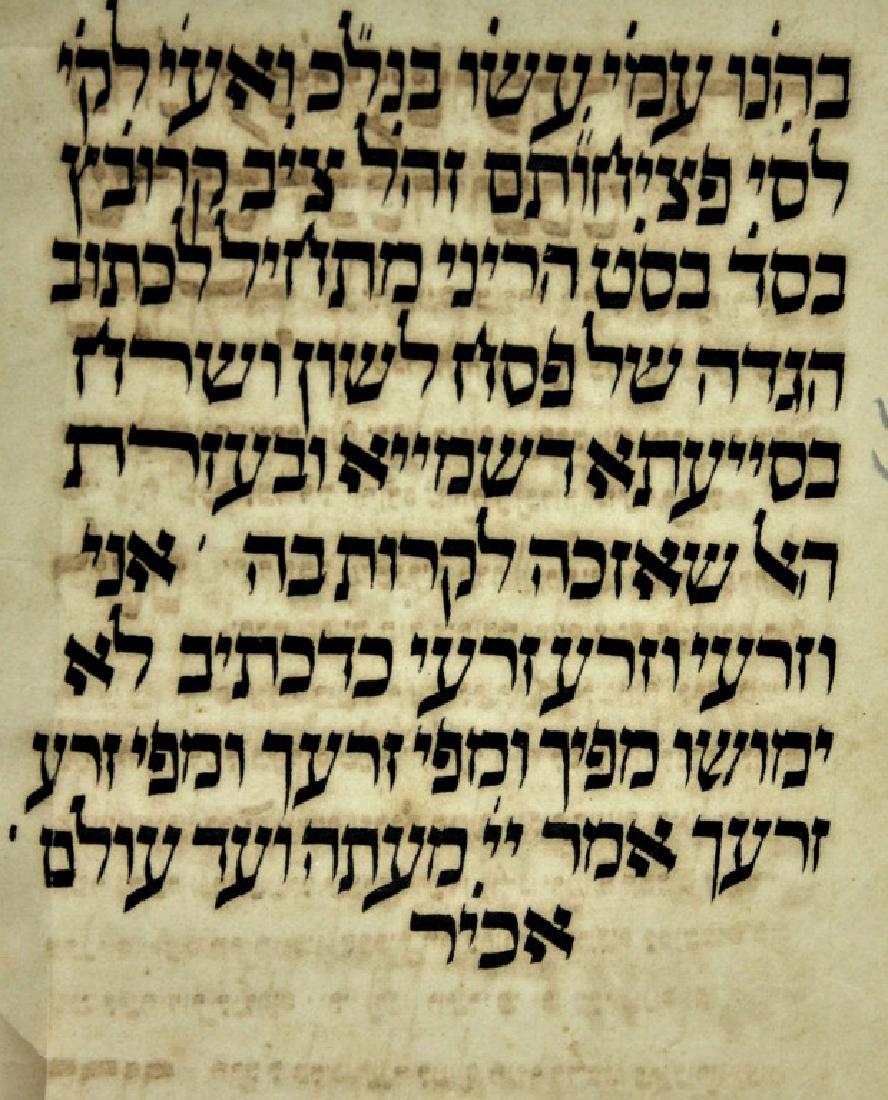 בהנו עמי עשו בנלכ ואעי לקי
לסי פציחותם זהל ציב קרובץ
בסד בסט הריני מתחיל לכתוב
הגדה של פסח לשון ושרח
בסייעתא דשמייא ובעזרת
האל שאזכה לקרות בה ׳ אני
וזרעי וזרע זרעי כדכתיב לא
ימושו מפיך ומפי זרעך ומפי זרע
זרעך אמר יי׳ מעתה ועד עולם ׳
אכיר